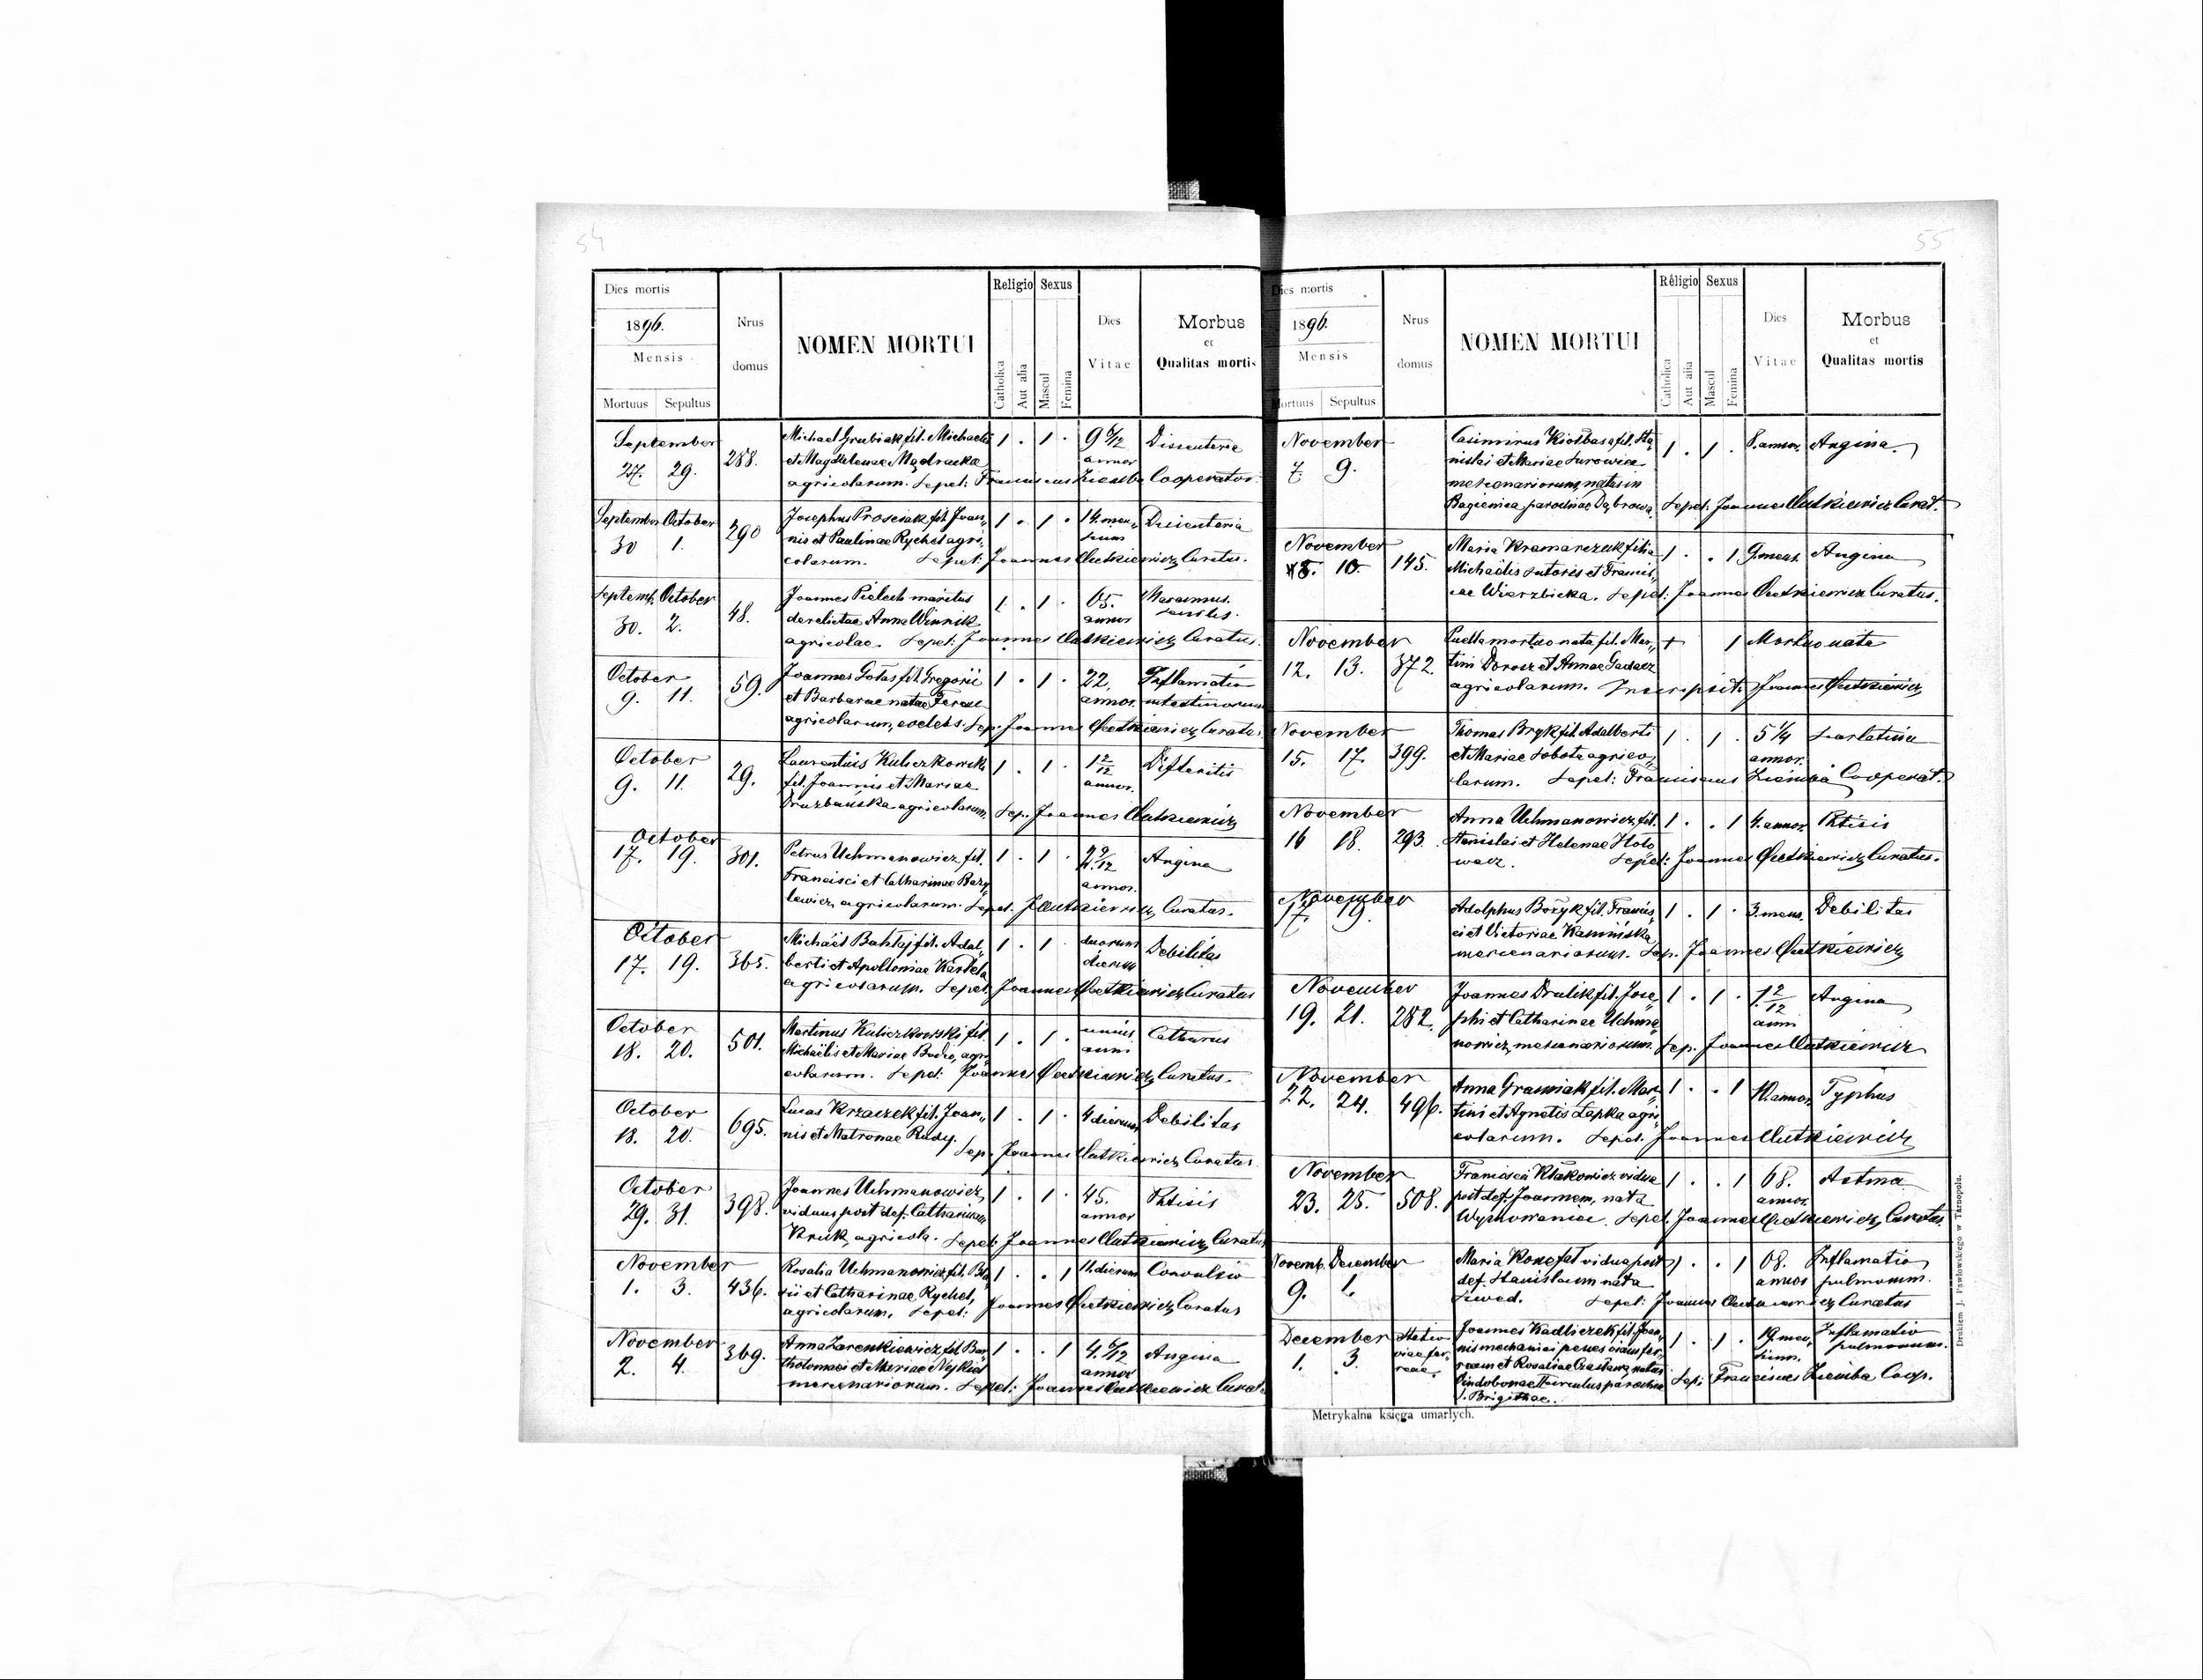 54
Dies mortis
1896.
Mensis
Mortuus Sepultus
Nrus domus
NOMEN MORTUI
Religio
Catholica
Aut alia
Sexus
Mascul
Femina
Dies Vitae
Morbus
et
Qualitas mortis
September
27. 29. 288.
Michael Grubiak fil. Michaelis 1 . 1 . 9 6/12 Dissenteria
et Magdalenae Mądracka annor
agricolarum. Sepel: Franciscus Ziemba Cooperator.
September October
30 1. 290
Josephus Prosciak fil. Joan„ 1 . 1 . 14. men„ Dissenteria
nis et Paulinae Rychel agri„ sium
colarum. Sepel: Joannes Curatus.
Septemb. October
30. 2. 48.
Joannes Pielech maritus 1 . 1 . 65. Marasmus
derelictae Anna Winnik annor senilis.
agricolae. Sepel: Joannes Curatus.
October
9. 11. 59.
Joannes Gołas fil. Gregorii 1 . 1 . 22. Inflamatio
et Barbarae natae annor. intestinorum
agricolarum, coelebs. Sep. Joannes Curatus.
October
9. 11. 29.
Laurentius Kuliczkowski 1 . 1 . 1 2/12 Difteritis
fil. Joannis et Mariae annor.
Drużbańska agricolarum. Sep. Joannes
October
17. 19. 301.
Petrus Uchmanowicz fil. 1 . 1 . Angina
Francisci et Catharinae Bazy annor.
lewicz agricolarum. Sepel. J. Curatus.
October
17. 19. 365.
Michaël Bahłaj fil. Adal„ 1 . 1 duorum Debilitas
berti et Apolloniae Kardela dierum
agricolarum. Sepel. Joannes Curatus
October
18. 20. 501.
Martinus Kuliczkowski fil. 1 . 1 . unius Catharus
Michaëlis et Mariae agri anni
colarum. Sepel: Joannes Curatus.
October
18. 20. 695.
Lucas Krzaczek fil. Joan„ 1 . 1 . 4 dierum Debilitas
nis et Matronae Rudy.
Sep. Joannes Curatus
October
29. 31. 398.
Joannes Uchmanowicz 1 . 1 . 45. Phtisis
viduus post def. Catharinam annor
Kruk, agricola. Sepel. Joannes Curatus
November
1. 3. 436.
Rosalia Uchmanowicz fil. 1 . . 1 11. dierum Convulsio
et Catharinae Rychel,
agricolarum. Sepel: Joannes Curatus
November
2. 4. 369.
Anna Zarenkiewicz fil. Bar 1 . . 1 4. 6/12 Angina
tholomaei et Mariae annor
mercenariorum. Sepel: Joannes Curat.
55
Dies mortis
1896.
Mensis
Mortuus Sepultus
Nrus domus
NOMEN MORTUI
Religio
Catholica
Aut alia
Sexus
Mascul
Femina
Dies Vitae
Morbus
et
Qualitas mortis
November
7. 9.
Casimirus Kiołbasa fil. Sta 1 . 1 . 8. annor. Angina
nislai et Mariae Surowiec
mercenariorum, natus in
Bagienica parochiae Dąbrowa. Sepel. Joannes Curat.
November
8. 10. 145.
Maria Kramarczuk filia 1 . . 1 9. mens. Angina
Michaëlis sutoris et Francis„
cae Wierzbicka. Sepel: Joannes Curatus.
November
12. 13. 372.
Puella mortuo nata fil. Mar„ + 1 Mortuo nata
tini Dorosz et Annae Gadacz
agricolarum. Joannes
November
15. 17. 399.
Thomas Bryk fil. Adalberti 1 . 1 . 5 1/4 Scarlatina
et Mariae Sobota agrico„ annor.
larum. Sepel: Franciscus Ziemba Cooperat.
November
16 18. 293.
Anna Uchmanowicz fil. 1 . . 1 4. annor. Phtisis
Stanislai et Helenae Hoło
wacz. Sepel: Joannes Curatus.
November
17. 19.
Adolphus Bożyk fil. Francis„ 1 . 1 . 3. mens. Debilitas
ci et Victoriae Kamińska
mercenariorum. Sep. Joannes
November
19. 21. 282.
Joannes Drulik fil. Jose„ 1 . 1 . 1 2/12 Angina
phi et Catharinae Uchma„ anni
nowicz, mercenariorum. Sep. Joannes
November
22. 24. 496.
Anna Grasniak fil. Mar„ 1 . . 1 10. annor. Typhus
tini et Agnetis Lepka agri„
colarum. Sepel. Joannes
November
23. 25. 508.
Francisca Kłakowicz vidua 1 . . 1 68. Astma
post def. Joannem, nata annor.
Wychowaniec. Sepel. Joannes Curatus.
Novemb. December
9. 1.
Maria Konefał vidua post 1 . . 1 68. Inflamatio
def. Stanislaum nata annor pulmonum.
Szwed. Sepel: Joannes Curatus
December
1. 3.
Statio viae fer„ reae.
Joannes Kadliczek fil. Joan„ 1 . 1 . 19. men„ Inflamatio
nis mechanici penes viam fer„ sium. pulmonum.
ream et Rosaliae natus
Vindobonae parochiae Sep: Franciscus Ziemba Coop.
S. Brigittae.
Metrykalna księga umarłych.
Drukiem J. Pawłowskiego w Tarnopolu.